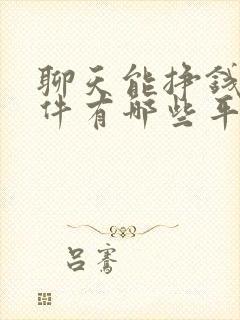 聊天能挣钱
件有哪些平
吕骞